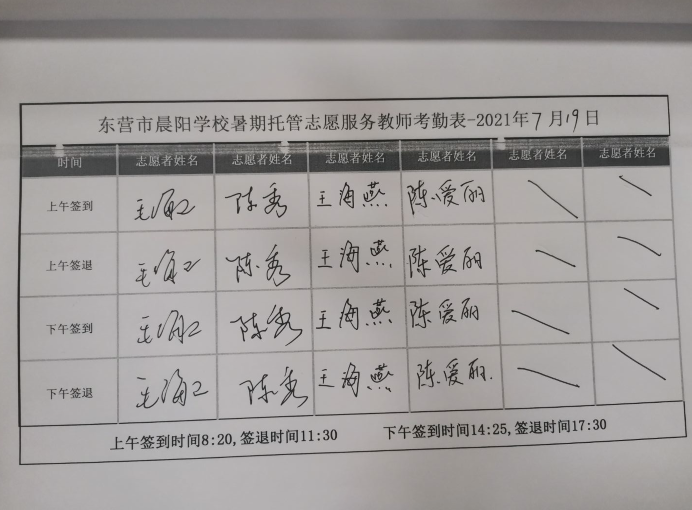 东营市晨阳学校暑期托管志愿服务教师考勤表-2021年7月19日
时间 志愿者姓名 志愿者姓名 志愿者姓名 志愿者姓名 志愿者姓名 志愿者姓名
上午签到 毛海 陈秀 王海燕 陈爱丽
上午签退 毛海 陈秀 王海燕 陈爱丽
下午签到 毛海 陈秀 王海燕 陈爱丽
下午签退 毛海 陈秀 王海燕 陈爱丽.
上午签到时间8:20,签退时间11:30 下午签到时间14:25,签退时间17:30